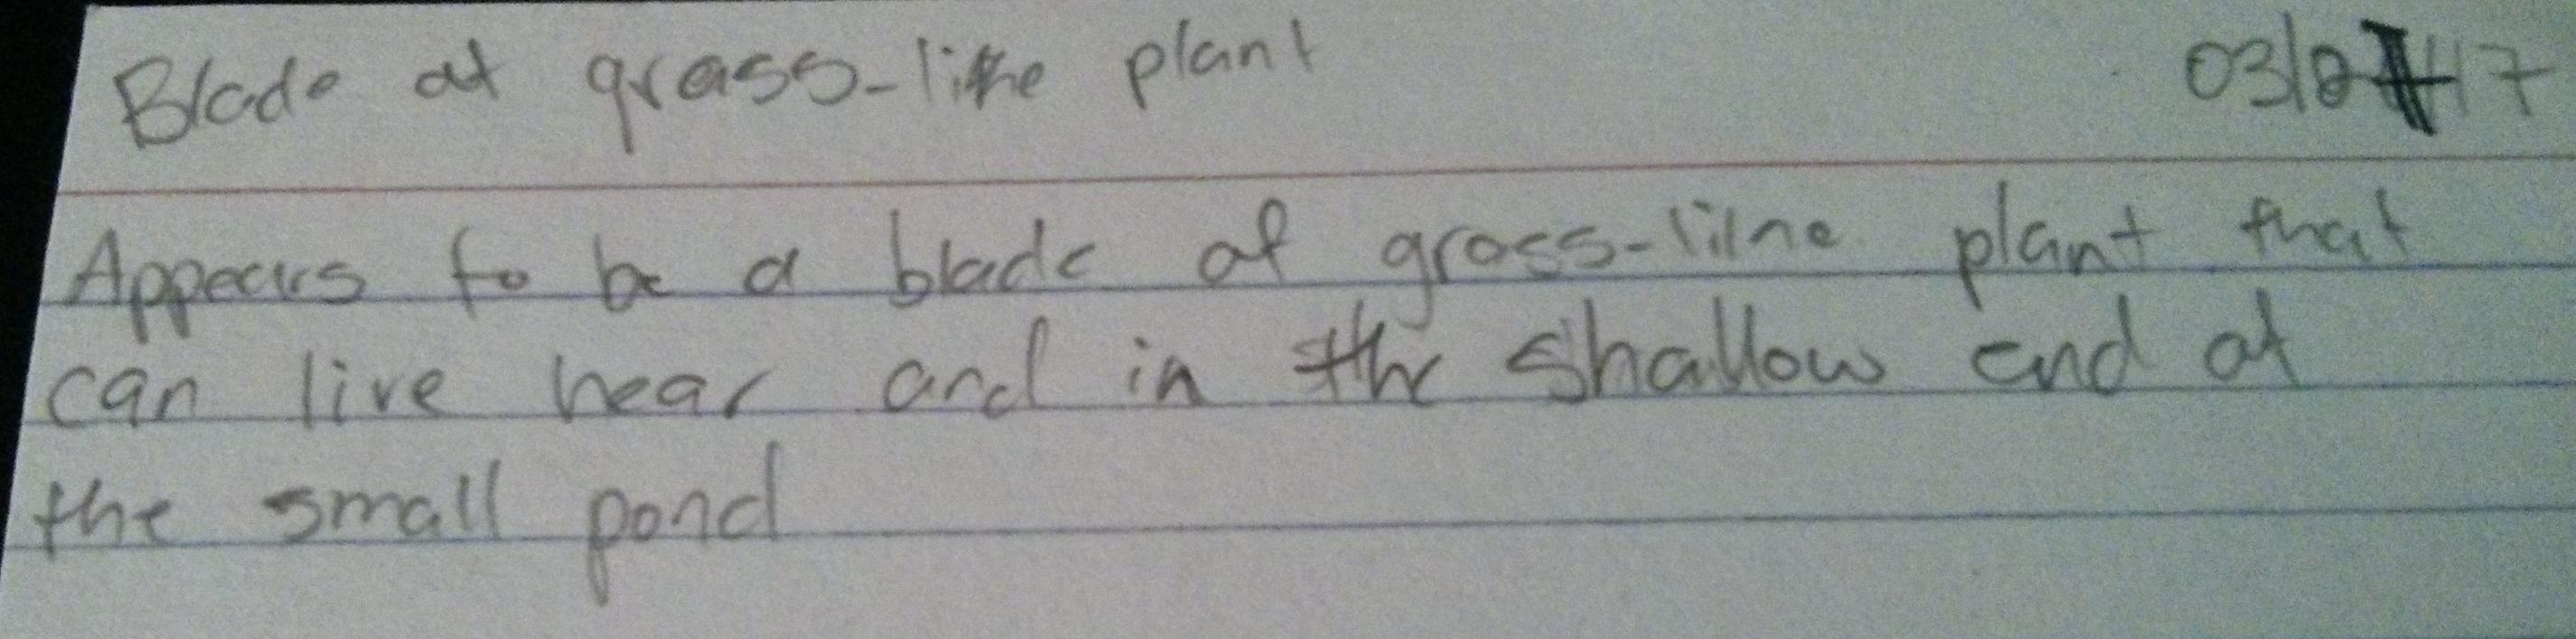 Blade of grass-like plant
Appears to be a blade of grass-like plant that
can live near and in the shallow end of
the small pond